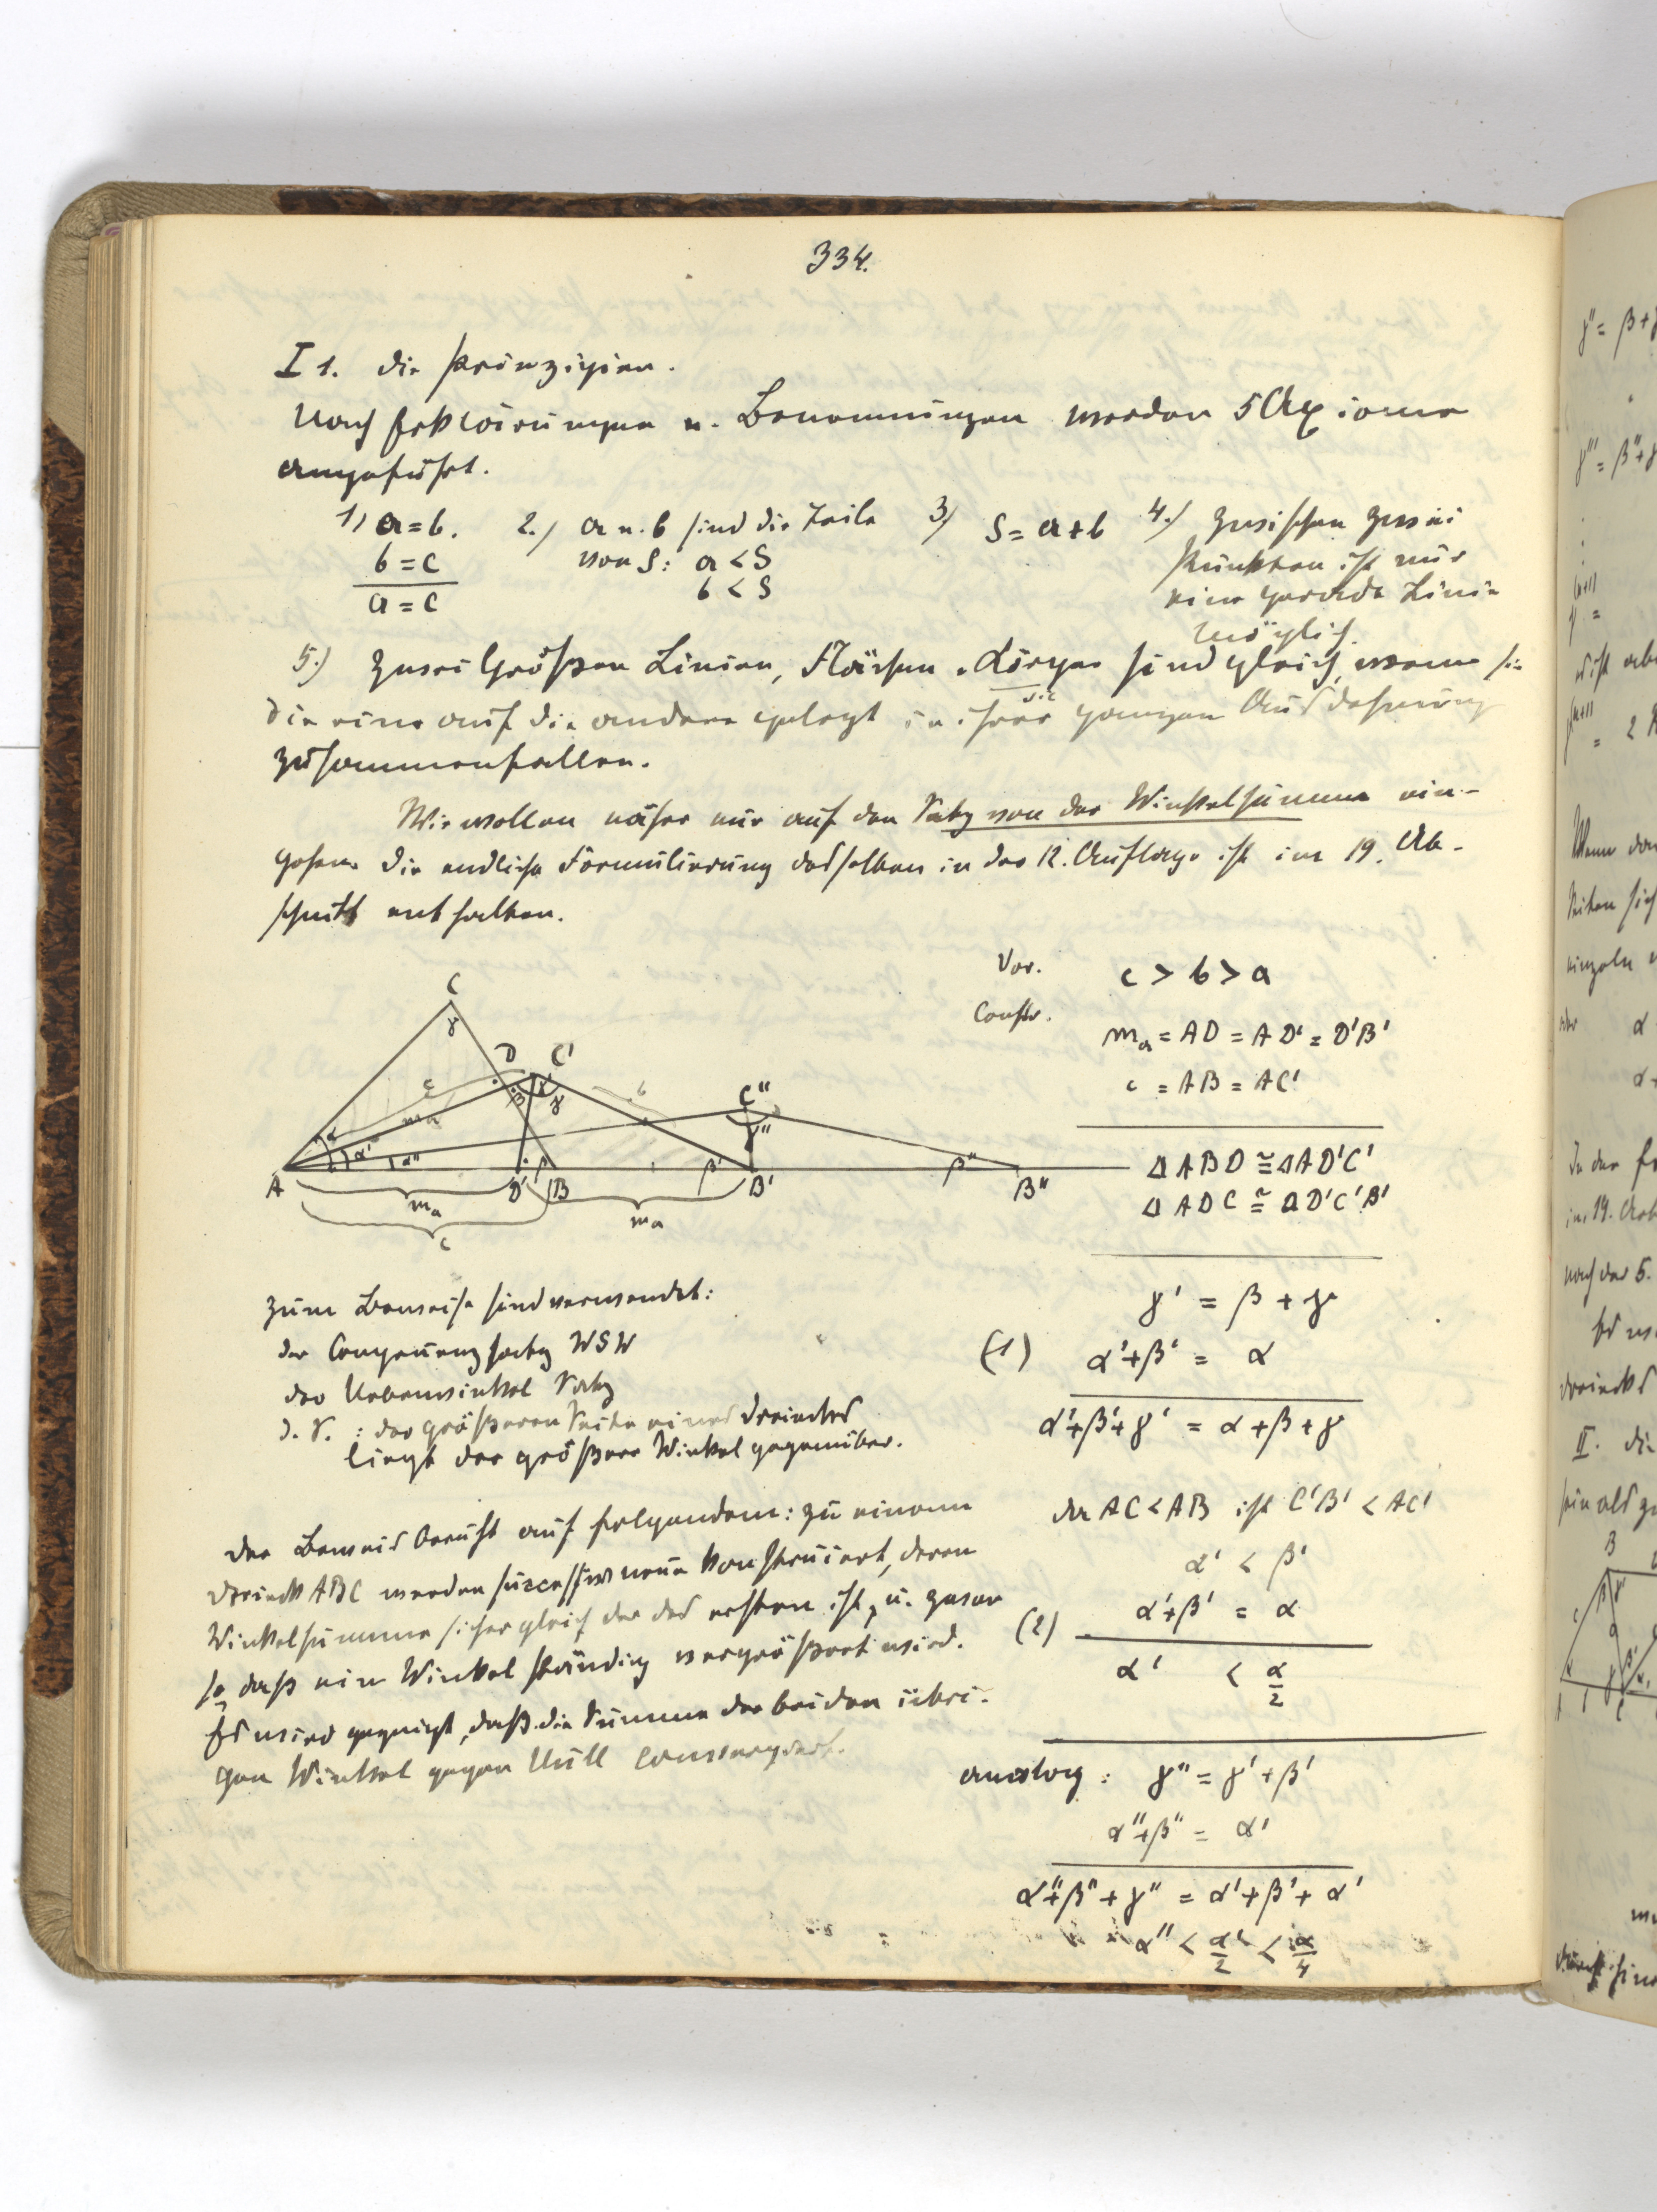 334.
I 1. die Prinzipien.
Nach Erklärungen u. Benennungen werden 5 Axiome
angeführt.
1) a = b.
b = c
a = c
2.) a u. b sind die Teile
von S: a < S
b < S
3) S = a + b
4.) Zwischen zwei
Punkten ist nur
eine gerade Linie
möglich.
5.) Zwei Größen Linien, Flächen, Körper sind gleich, wenn sie
die eine auf die andere gelegt in ihrer ganzen Ausdehnung
zusammenfallen.
Wir wollen näher nur auf den Satz von der Winkelsumme ein-
gehen. Die endliche Formulierung desselben in der 12. Auflage ist im 19. Ab-
schnitt enthalten.
Vor. c > b > a
Constr. mₐ = AD = AD' = D'B'
c = AB = AC'
Δ ABD ≅ Δ AD'C'
Δ ADC ≅ Δ D'C'B'
C γ D C' C" c mₐ b
α α' α" β γ γ" β' β"
A D' B B' B"
mₐ mₐ
c
Zum Beweise sind verwendet:
der Congruenzsatz WSW
der Nebenwinkel Satz
d. S. : der größeren Seite eines Dreiecks
liegt der größere Winkel gegenüber.
Der Beweis beruht auf folgendem: zu einem
Dreieck ABC werden successiv neue konstruiert, deren
Winkelsumme sicher gleich der des ersten ist, u. zwar
so, daß ein Winkel ständig vergrößert wird.
Es wird gezeigt, daß die Summe der beiden übri-
gen Winkel gegen Null convergiert.
γ' = β + γ
(1) α' + β' = α
α' + β' + γ' = α + β + γ
da AC < AB ist C'B' < AC'
α' < β'
α' + β' = α
(2) α' < α/2
analog: γ" = γ' + β'
α" + β" = α'
α" + β" + γ" = α' + β' + α'
α" < α'/2 < α/4